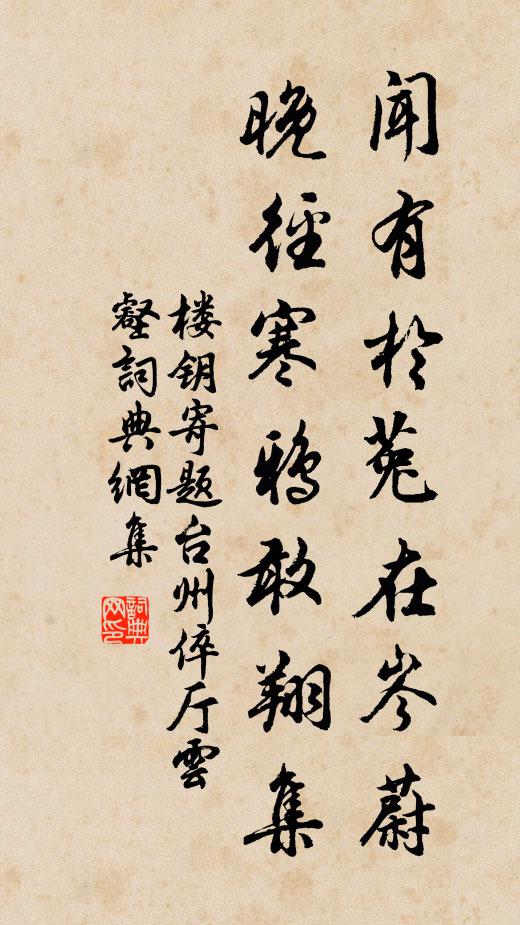 闻有於菟在岑蔚
晚径寒鸦敢翔集
楼钥寄题台州倅厅雲
壑詞典網集
詞典网印